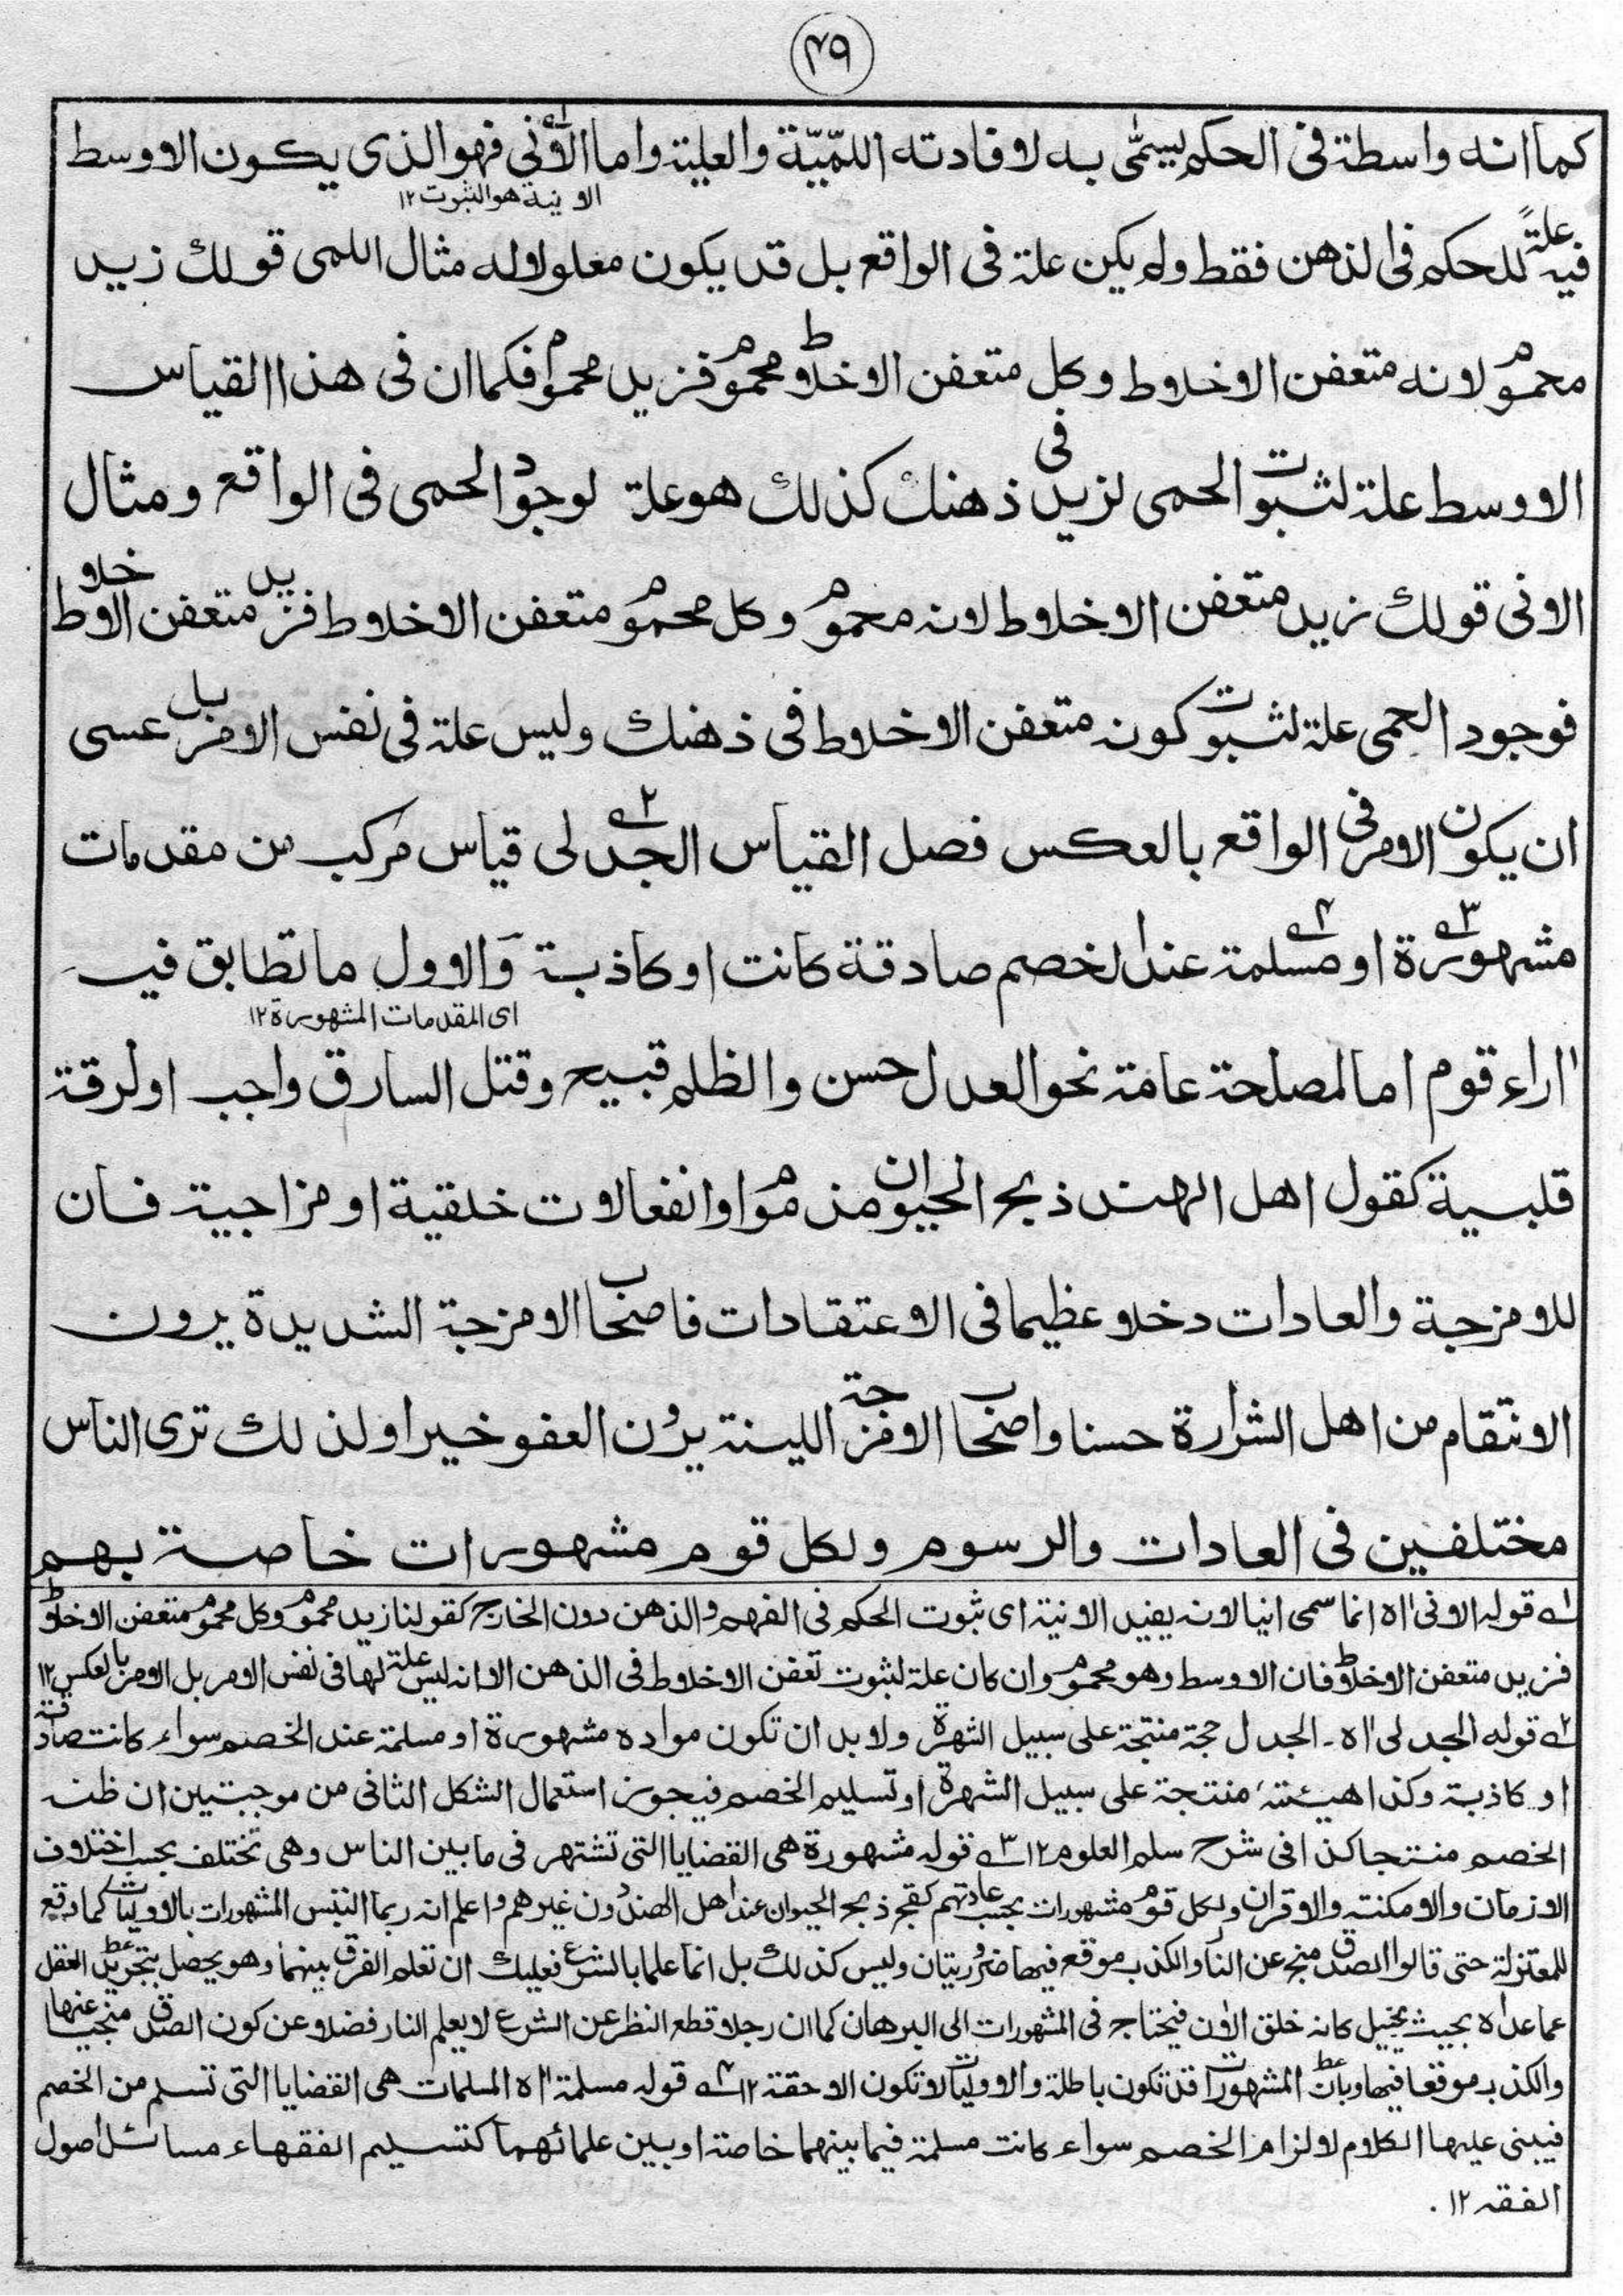 ۴۹
كما انه واسطة فى الحكم يسمّى به لافادته اللمّيّة والعلية واما الانى فهو الذى يكون الاوسط
الانية هو الثبوت ١٢
فيه علةً للحكم فى الذهن فقط ولم يكن علة فى الواقع بل قد يكون معلولا له مثال اللمى قولك زيد
محموم لانه متعفن الاخلاط وكل متعفن الاخلاط محموم فزيد محموم فكما ان فى هذا القياس
الاوسط علة لثبوت الحمى لزيد فى ذهنك كذلك هو علة لوجود الحمى فى الواقع ومثال
الانى قولك زيد متعفن الاخلاط لانه محموم وكل محموم متعفن الاخلاط فزيد متعفن الاخلاط
فوجود الحمى علة لثبوت كونه متعفن الاخلاط فى ذهنك وليس علة فى نفس الامر بل عسى
ان يكون الامر فى الواقع بالعكس فصل القياس الجدلى قياس مركب من مقدمات
مشهورة او مسلمة عند الخصم صادقة كانت او كاذبة والاول ما تطابق فيه
اى المقدمات المشهورة ١٢
اراء قوم اما لمصلحة عامة نحو العدل حسن والظلم قبيح وقتل السارق واجب او لرقة
قلبية كقول اهل الهند ذبح الحيوان مذموم او انفعالات خلقية او مزاجية فان
للامزجة والعادات دخلا عظيما فى الاعتقادات فاصحاب الامزجة الشديدة يرون
الانتقام من اهل الشرارة حسنا واصحاب الامزجة اللينة يرون العفو خيرا ولذلك ترى الناس
مختلفين فى العادات والرسوم ولكل قوم مشهورات خاصة بهم
١ے قوله الانى اه انما سمى انيا لانه يفيد الانية اى ثبوت الحكم فى الفهم والذهن دون الخارج كقولنا زيد محموم وكل محموم متعفن الاخلاط
فزيد متعفن الاخلاط فان الاوسط وهو محموم وان كان علة لثبوت تعفن الاخلاط فى الذهن الا انه ليس علة لها فى نفس الامر بل الامر بالعكس ١٢
٢ے قوله الجدلى اه۔ الجدل حجة منتجة على سبيل الشهرة ولا بد ان تكون مواده مشهورة او مسلمة عند الخصم سواء كانت صادقة
او كاذبة وكذا هيئته منتجة على سبيل الشهرة او تسليم الخصم فيجوز استعمال الشكل الثانى من موجبتين ان ظنه
الخصم منتجا كذا فى شرح سلم العلوم ١٢ ٣ے قوله مشهورة هى القضايا التى تشتهر فى ما بين الناس وهى تختلف بحسب اختلاف
الازمان والامكنة والاقران ولكل قوم مشهورات بحسب عادتهم كقبح ذبح الحيوان عند اهل الهند دون غيرهم واعلم انه ربما التبس المشهورات بالاوليات كما وقع
للمعتزلة حتى قالوا الصدق منج عن النار والكذب موقع فيها ضروريتان وليس كذلك بل انما علما بالشرع فعليك ان تعلم الفرق بينهما وهو يحصل بتجريد العقل
عما عداه بحيث يخيل كانه خلق الان فيحتاج فى المشهورات الى البرهان كما ان رجلا قطع النظر عن الشرع لا يعلم النار فضلا عن كون الصدق منجيا عنها
والكذب موقعا فيها وبان المشهورات قد تكون باطلة والاوليات لا تكون الا حقة ١٢ ۴ے قوله مسلمة اه المسلمات هى القضايا التى تسلم من الخصم
فيبنى عليها الكلام لالزام الخصم سواء كانت مسلمة فيما بينهما خاصة او بين علمائهما كتسليم الفقهاء مسائل اصول
الفقه ١٢ .